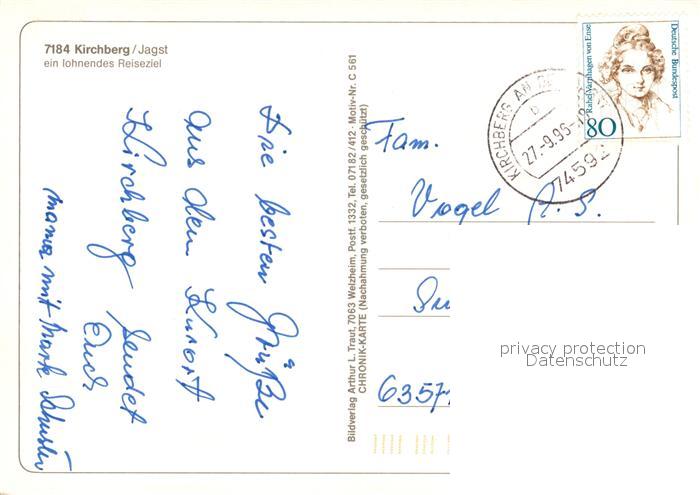 7184 Kirchberg/Jagst
ein lohnendes Reiseziel
Die besten Grüße
aus dem Kurort
Kirchberg sendet
Euch
Mama mit
Bildverlag Arthur L. Traut, 7063 Welzheim, Postf. 1332, Tel. 07182/412 · Motiv-Nr. C 561
CHRONIK-KARTE (Nachahmung verboten, gesetzlich geschützt)
Rahel Varnhagen von Ense
Deutsche Bundespost
80
KIRCHBERG AN DE
27.-9.96
74592
Fam.
Vogel
63571
privacy protection
Datenschutz